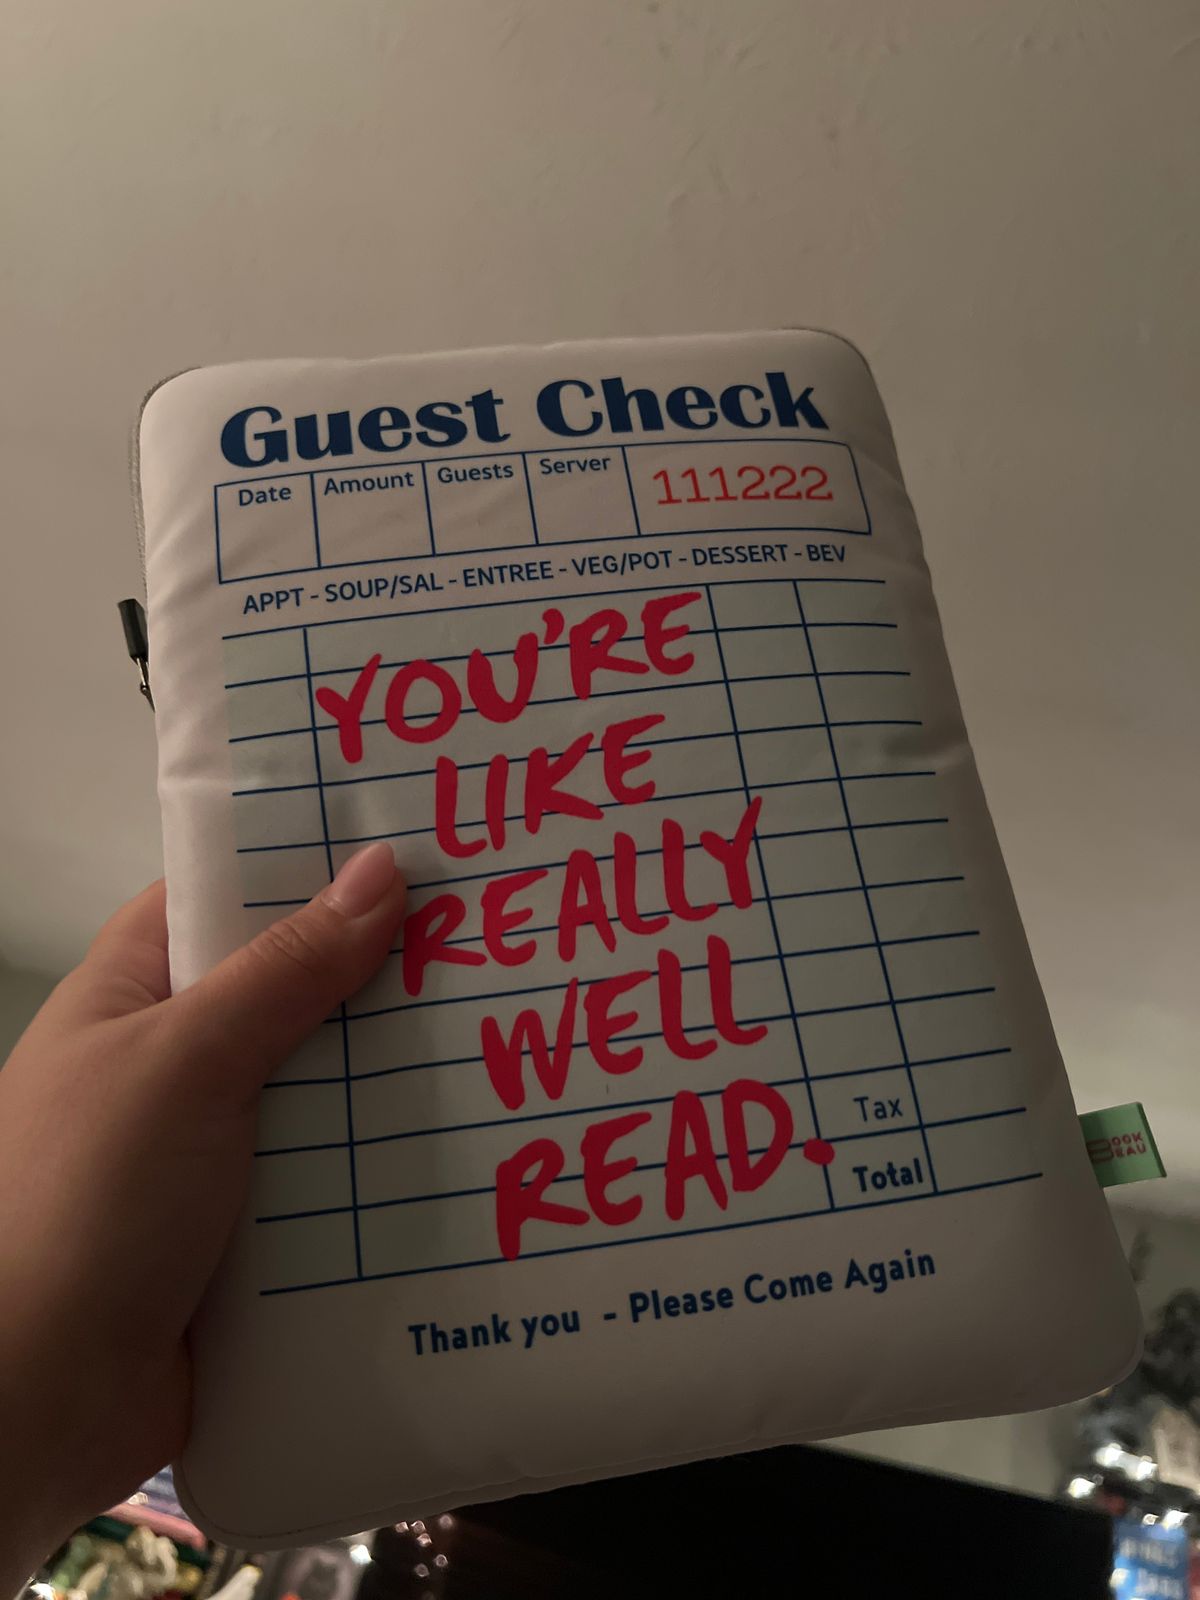 Guest Check
Date Amount Guests Server 111222
APPT - SOUP/SAL - ENTREE - VEG/POT - DESSERT - BEV
YOU'RE
LIKE
REALLY
WELL
READ.
Tax
Total
Thank you - Please Come Again
BOOK
BEAU